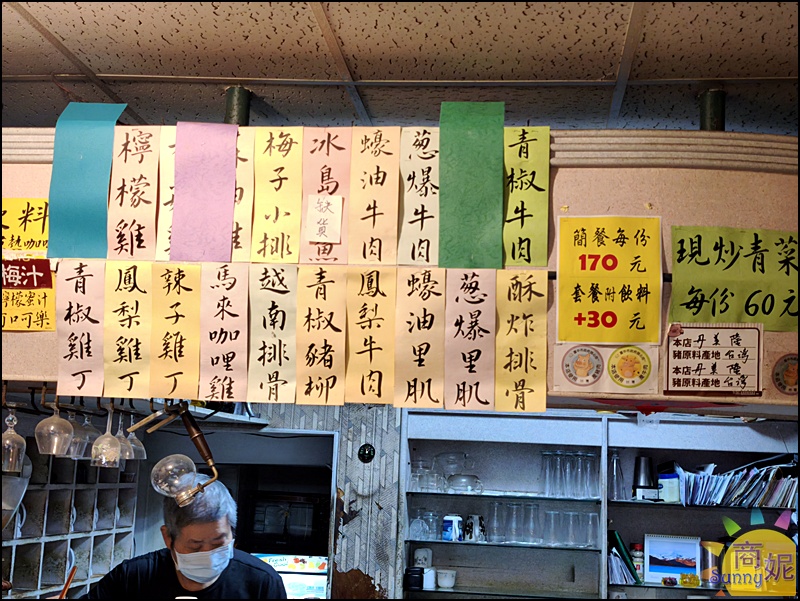 檸檬雞
梅子小排
冰島
缺貨
魚
蠔油牛肉
蔥爆牛肉
青椒牛肉
料
梅汁
檸檬蜜汁
可口可樂
青椒雞丁
鳳梨雞丁
辣子雞丁
馬來咖哩雞
越南排骨
青椒豬柳
鳳梨牛肉
蠔油里肌
蔥爆里肌
酥炸排骨
簡餐每份
170 元
套餐附飲料
+30 元
現炒青菜
每份60元
本店 丹麥 隆
豬原料產地 台灣
本店 丹麥 隆
豬原料產地 台灣
商妮
Sunny